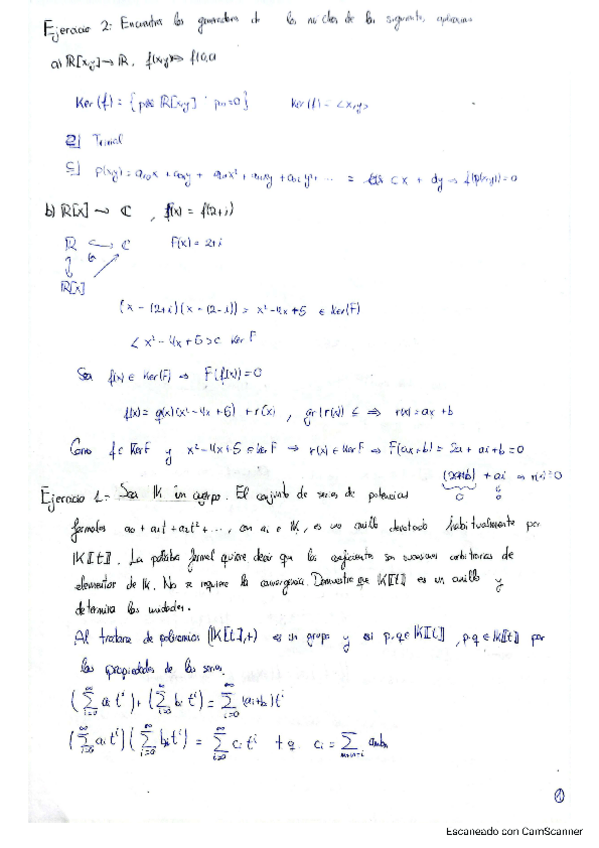 Ejercicio 2: Encuentra los generadores de los núcleos de las siguientes aplicaciones
a) ℝ[x,y] → ℝ, f(x,y) ↦ f(0,0)
Ker(f) = {p ∈ ℝ[x,y] : p₀₀=0} Ker(f) = <x,y>
⊇] Trivial
⊆] p(x,y) = a₁₀x + a₀₁y + a₂₀x² + a₁₁xy + a₀₂y² ... = cx + dy → f(p(x,y)) = 0
b) ℝ[x] → ℂ , f(x) = f(2+i)
ℝ ↪ ℂ F(x) = 2+i
ℝ[x]
(x - (2+i)) (x - (2-i)) = x² - 4x + 5 ∈ Ker(F)
< x² - 4x + 5 > ⊂ Ker F
Sea f(x) ∈ Ker(F) ⇒ F(f(x)) = 0
f(x) = q(x)(x² - 4x + 5) + r(x) , gr(r(x)) ≤ ⇒ r(x) = ax + b
Como f ∈ Ker F y x² - 4x + 5 ∈ Ker F → r(x) ∈ Ker F ⇒ F(ax+b) = 2a + ai + b = 0
(2a+b) + ai ⇒ r(x) = 0
0 0
Ejercicio 1.- Sea 𝕂 un cuerpo. El conjunto de series de potencias
formales a₀ + a₁t + a₂t² + ..., con aᵢ ∈ 𝕂, es un anillo denotado habitualmente por
𝕂[[t]]. La palabra formal quiere decir que los coeficientes son sucesiones arbitrarias de
elementos de 𝕂. No se requiere la convergencia. Demuestre que 𝕂[[t]] es un anillo y
determina las unidades.
Al tratarse de polinomios (𝕂[[t]],+) es un grupo y si p,q ∈ 𝕂[[t]] , p·q ∈ 𝕂[[t]] por
las propiedades de las series.
(∑_{i=0}^∞ aᵢ tⁱ) + (∑_{i=0}^∞ bᵢ tⁱ) = ∑_{i=0}^∞ (aᵢ+bᵢ) tⁱ
(∑_{i=0}^∞ aᵢ tⁱ) (∑_{i=0}^∞ bᵢ tⁱ) = ∑_{i=0}^∞ cᵢ tⁱ tq cᵢ = ∑_{m+n=i} aₘbₙ
①
Escaneado con CamScanner